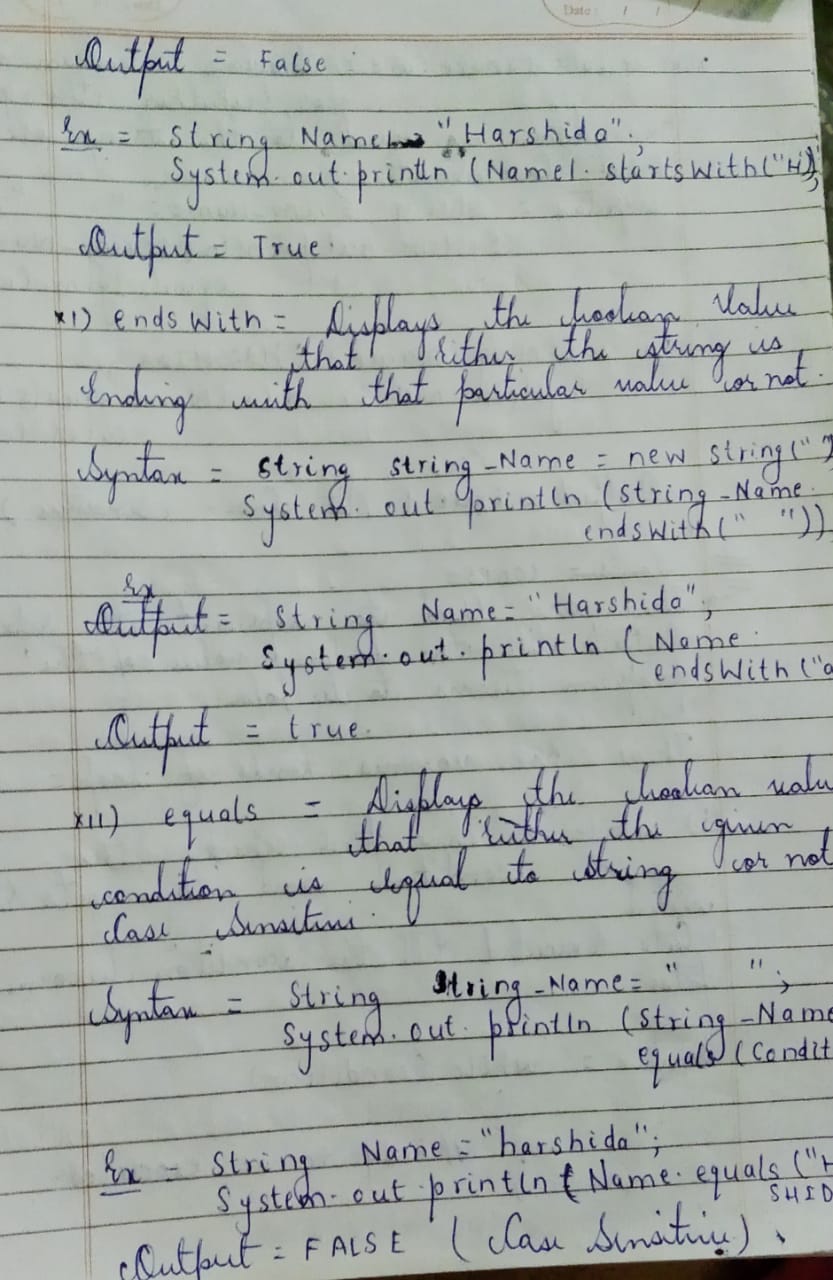 Date: / /
Output = False
Ex = String Name1 = "Harshida";
System.out.println (Name1.startsWith("H")
Output = True.
xi) endsWith = Displays the boolean Value
that Either the string is
Ending with that particular value or not.
Syntax = String string_Name = new string("
System.out.println (String_Name.
endsWith(" "))
Ex
Output = String Name = "Harshida";
System.out.println (Name.
endsWith ("a
Output = true.
xii) equals = Displays the boolean valu
that Either the given
condition is equal to string or not
Case Sensitive.
Syntax = String String_Name = " ";
System.out.println (String_Name
equals (Condit
Ex = String Name = "harshida";
System.out.println ( Name.equals ("H
SHID
Output = FALSE ( Case Sensitive ).